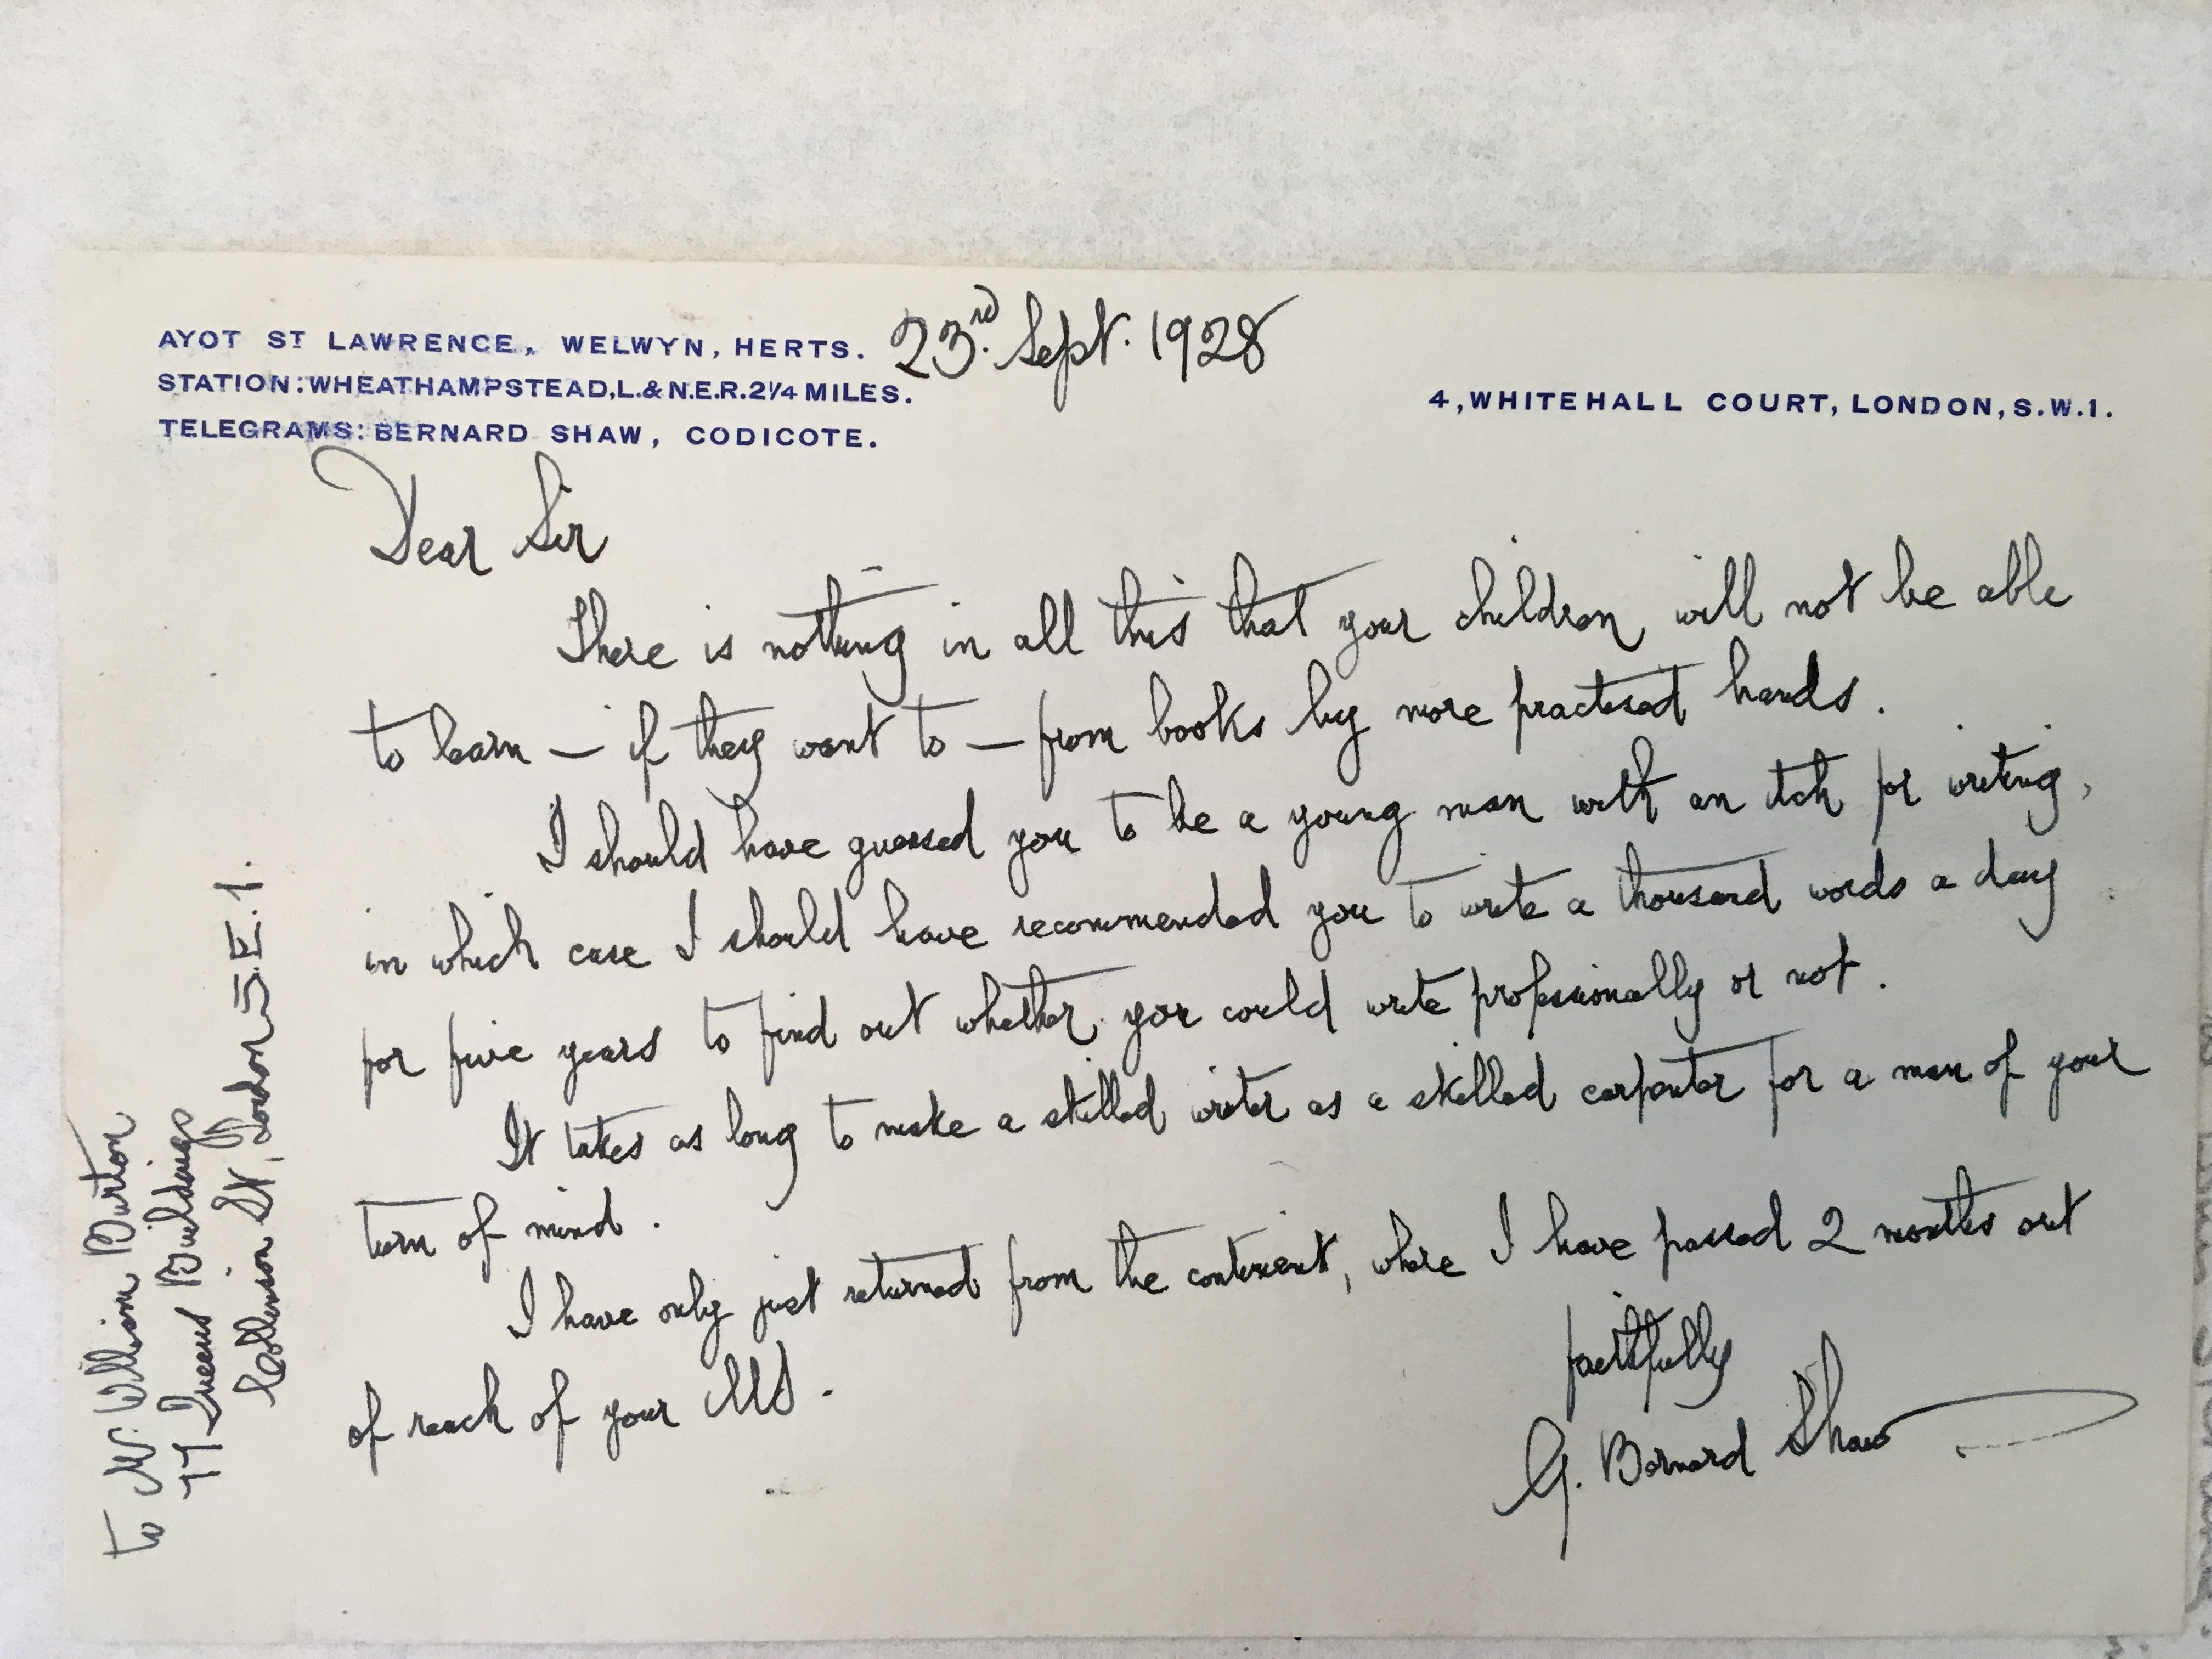 AYOT ST LAWRENCE, WELWYN, HERTS.
STATION: WHEATHAMPSTEAD, L.& N.E.R. 2¼ MILES.
TELEGRAMS: BERNARD SHAW, CODICOTE.
23rd Sept. 1928
4, WHITEHALL COURT, LONDON, S.W.1.
Dear Sir
There is nothing in all this that your children will not be able
to learn — if they want to — from books by more practised hands.
I should have guessed you to be a young man with an itch for writing,
in which case I should have recommended you to write a thousand words a day
for five years to find out whether you could write professionally or not.
It takes as long to make a skilled writer as a skilled carpenter for a man of your
turn of mind.
I have only just returned from the continent, where I have passed 2 months out
of reach of your MS.
faithfully
G. Bernard Shaw
to Mr William Burton
77 Queens Buildings
Collinson St, London S.E.1.